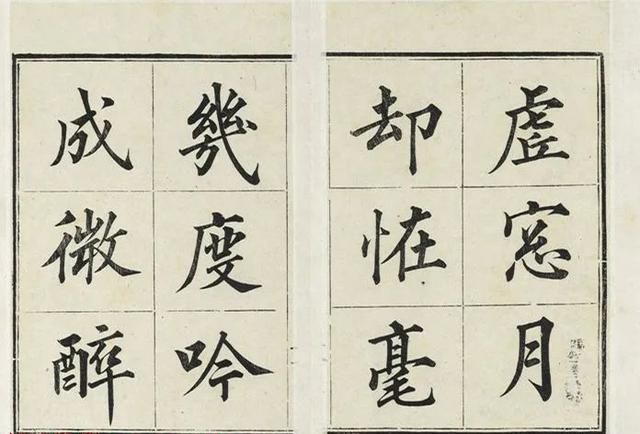 虛窓月
却恠毫
幾度吟
成微醉